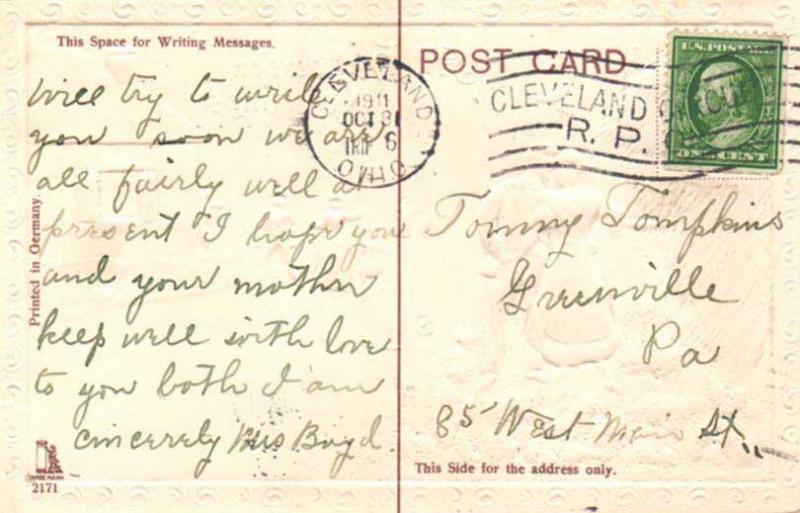 This Space for Writing Messages.
Will try to write
you soon we are
all fairly well at
present I hope you
and your mother
keep well with love
to you both I am
sincerely Mrs Boyd.
Printed in Germany.
TRADE MARK
2171
POST CARD
CLEVELAND
1911
OCT 31
TRIP 6
OHIO
CLEVELAND CIRCUIT
R. P. O.
U.S. POSTAGE
ONE CENT
Tommy Tompkins
Greenville
Pa
85 West Main St.
This Side for the address only.